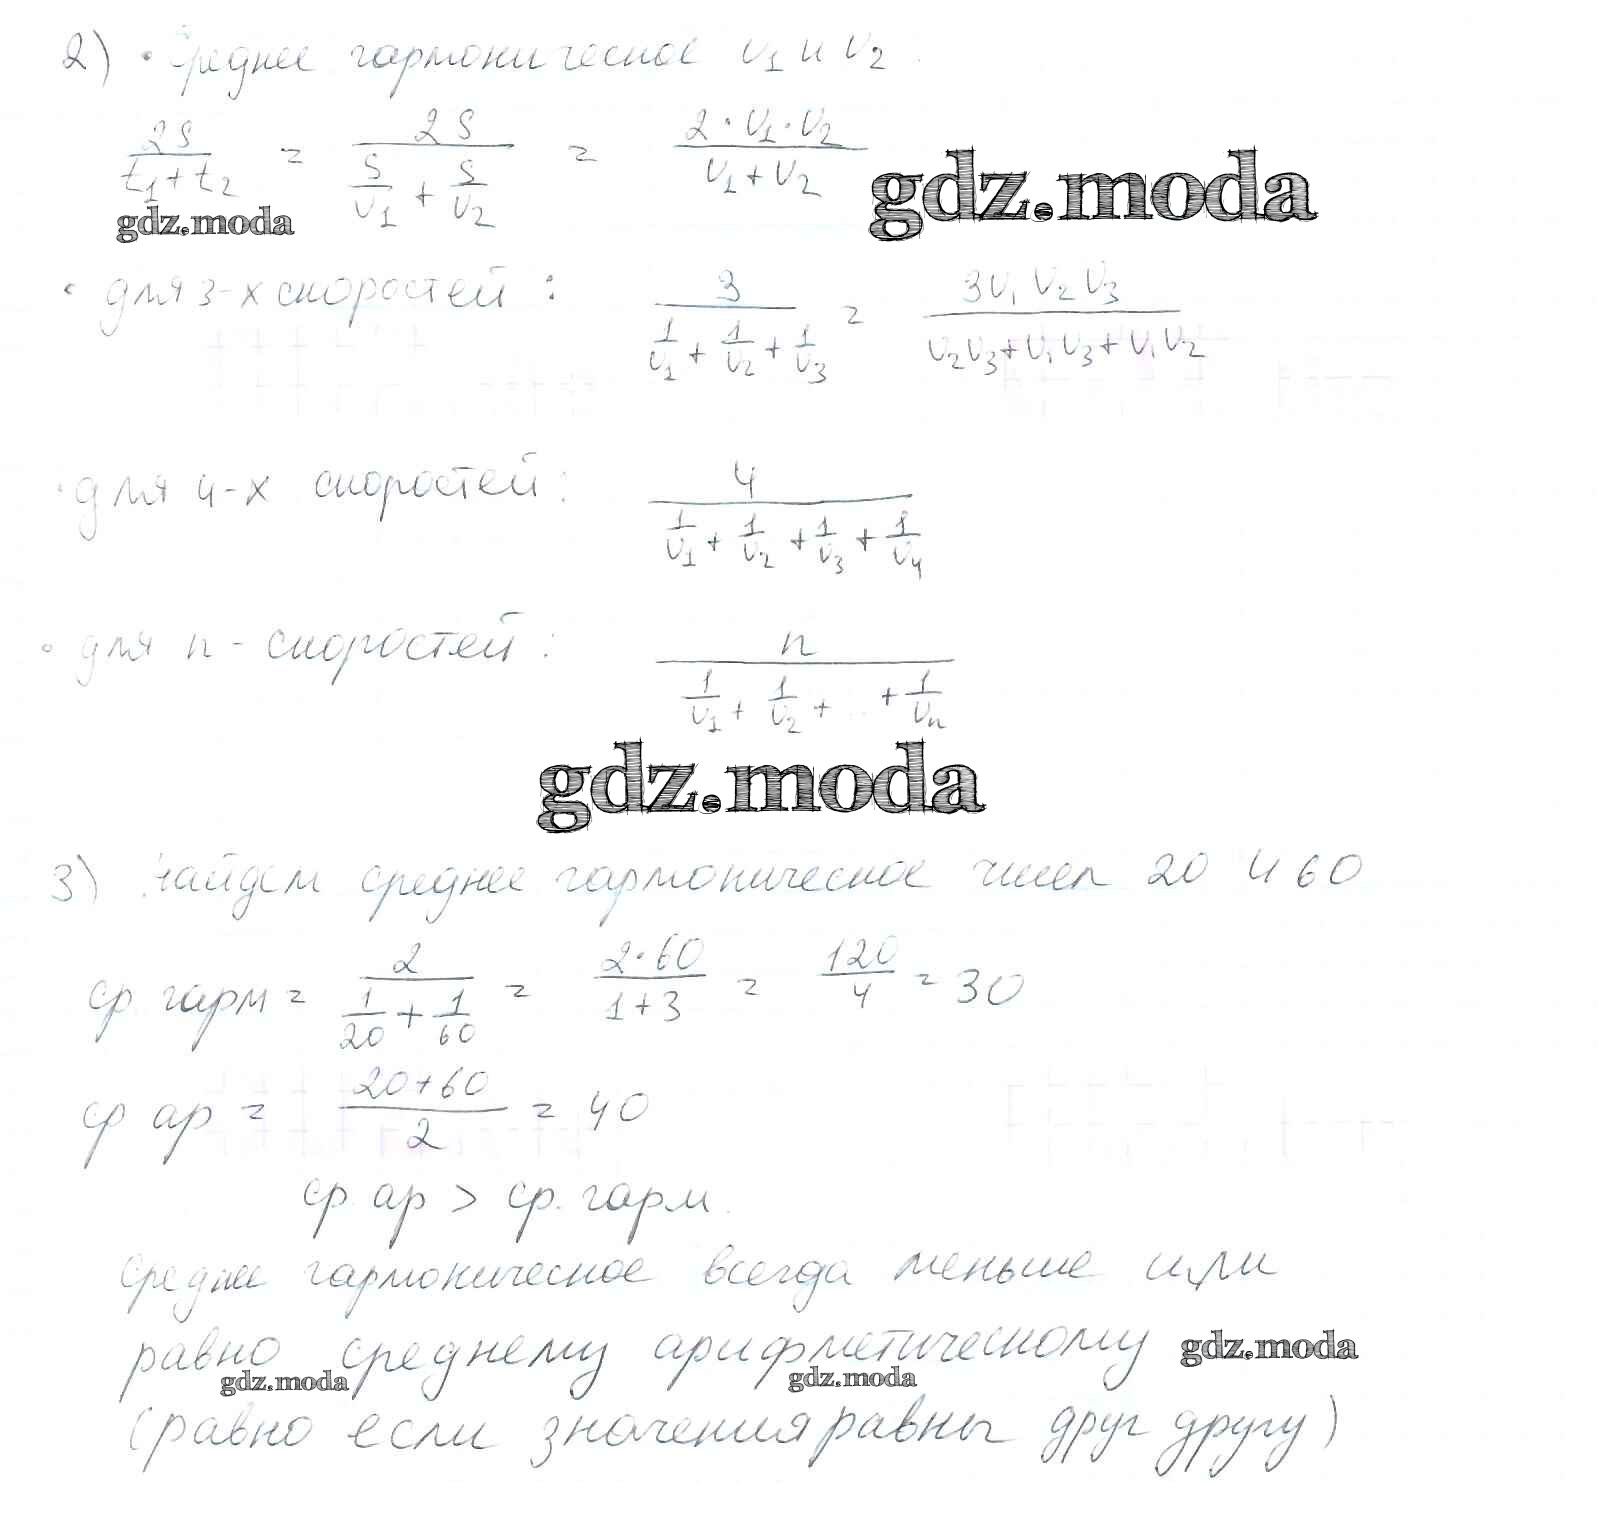 2) • Среднее гармоническое v₁ и v₂
2S/(t₁+t₂) = 2S/(S/v₁ + S/v₂) = 2·v₁·v₂/(v₁+v₂)
gdz.moda
gdz.moda
• для 3-х скоростей: 3/(1/v₁ + 1/v₂ + 1/v₃) = 3v₁v₂v₃/(v₂v₃+v₁v₃+v₁v₂)
• для 4-х скоростей: 4/(1/v₁ + 1/v₂ + 1/v₃ + 1/v₄)
• для n-скоростей: n/(1/v₁ + 1/v₂ + ... + 1/vₙ)
gdz.moda
3) Найдем среднее гармоническое чисел 20 и 60
ср. гарм = 2/(1/20 + 1/60) = 2·60/(1+3) = 120/4 = 30
ср ар = (20+60)/2 = 40
ср. ар > ср. гарм.
Среднее гармоническое всегда меньше или
равно среднему арифметическому gdz.moda
gdz.moda gdz.moda
(равно если значения равны друг другу)